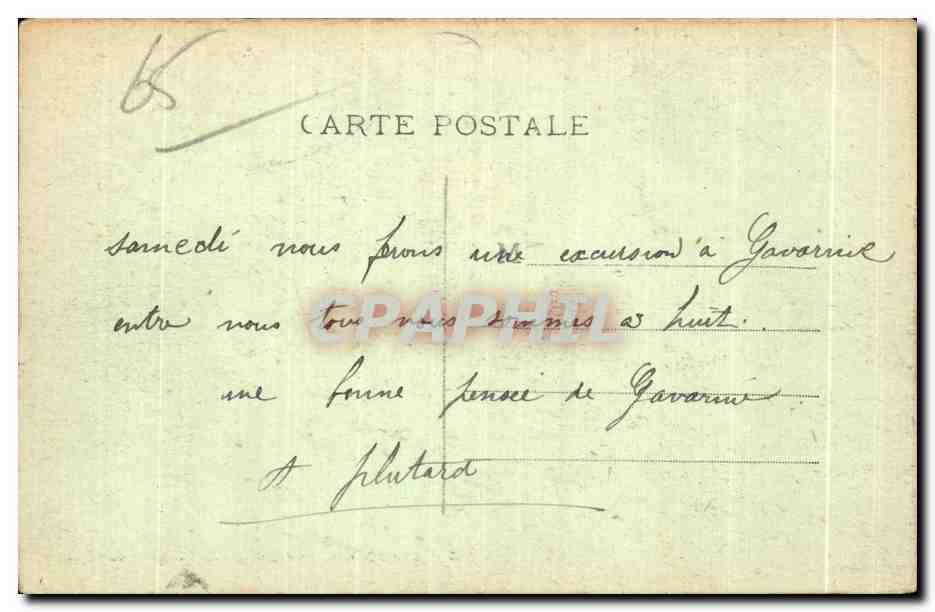 65
CARTE POSTALE
samedi nous ferons une excursion à Gavarnie
entre nous tous nous sommes à huit.
une bonne pensée de Gavarnie.
A plutard
CPAPHIL